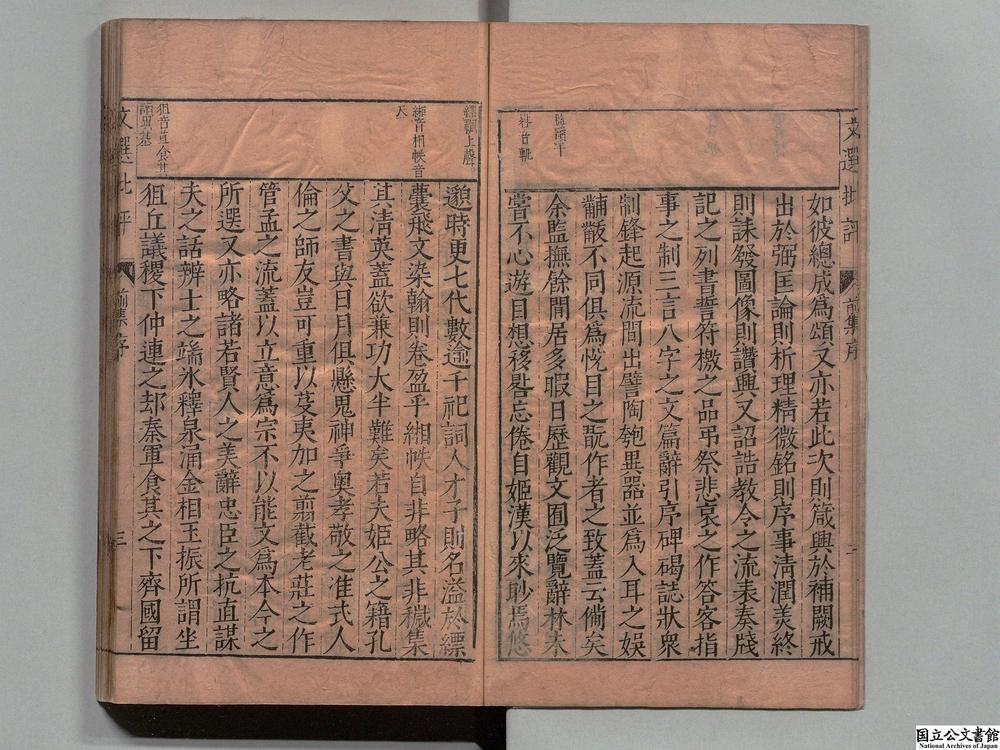 文選批評 前集序 二
如彼總成為頌又亦若此次則箴興於補闕戒
出於弼匡論則析理精微銘則序事清潤美終
則誄發圖像則讚興又詔誥教令之流表奏牋
記之列書誓符檄之品弔祭悲哀之作答客指
事之制三言八字之文篇辭引序碑碣誌狀衆
制鋒起源流間出譬陶匏異器並為入耳之娛
黼黻不同俱為悅目之翫作者之致蓋云備矣
余監撫餘閒居多暇日歷觀文囿泛覽辭林未
嘗不心遊目想移晷忘倦自姬漢以來眇焉悠
晷音軌
縹上聲
緗音相帙音
邈時更七代數逾千祀詞人才子則名溢於縹
囊飛文染翰則卷盈乎緗帙自非略其非穢集
其清英蓋欲兼功大半難矣若夫姬公之籍孔
父之書與日月俱懸鬼神爭奧孝敬之准式人
倫之師友豈可重以芟夷加之翦截老莊之作
管孟之流蓋以立意為宗不以能文為本今之
所選又亦略諸若賢人之美辭忠臣之抗直謀
夫之話辨士之端氷釋泉涌金相玉振所謂坐
狙丘議稷下仲連之却秦軍食其之下齊國留
狙音苴食其
音異基
文選批評 前集序 三
国立公文書館
National Archives of Japan